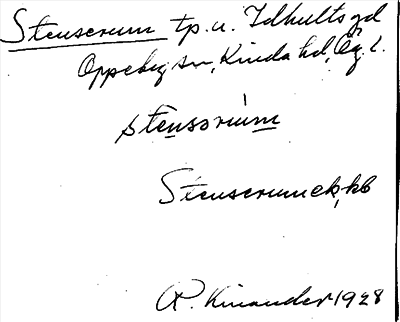 Stenserum tp. u. Idhults gd
Oppeby sn, Kinda hd, Ög. l.
stensorium
Stenserum ek, kb
R. Kinander 1928